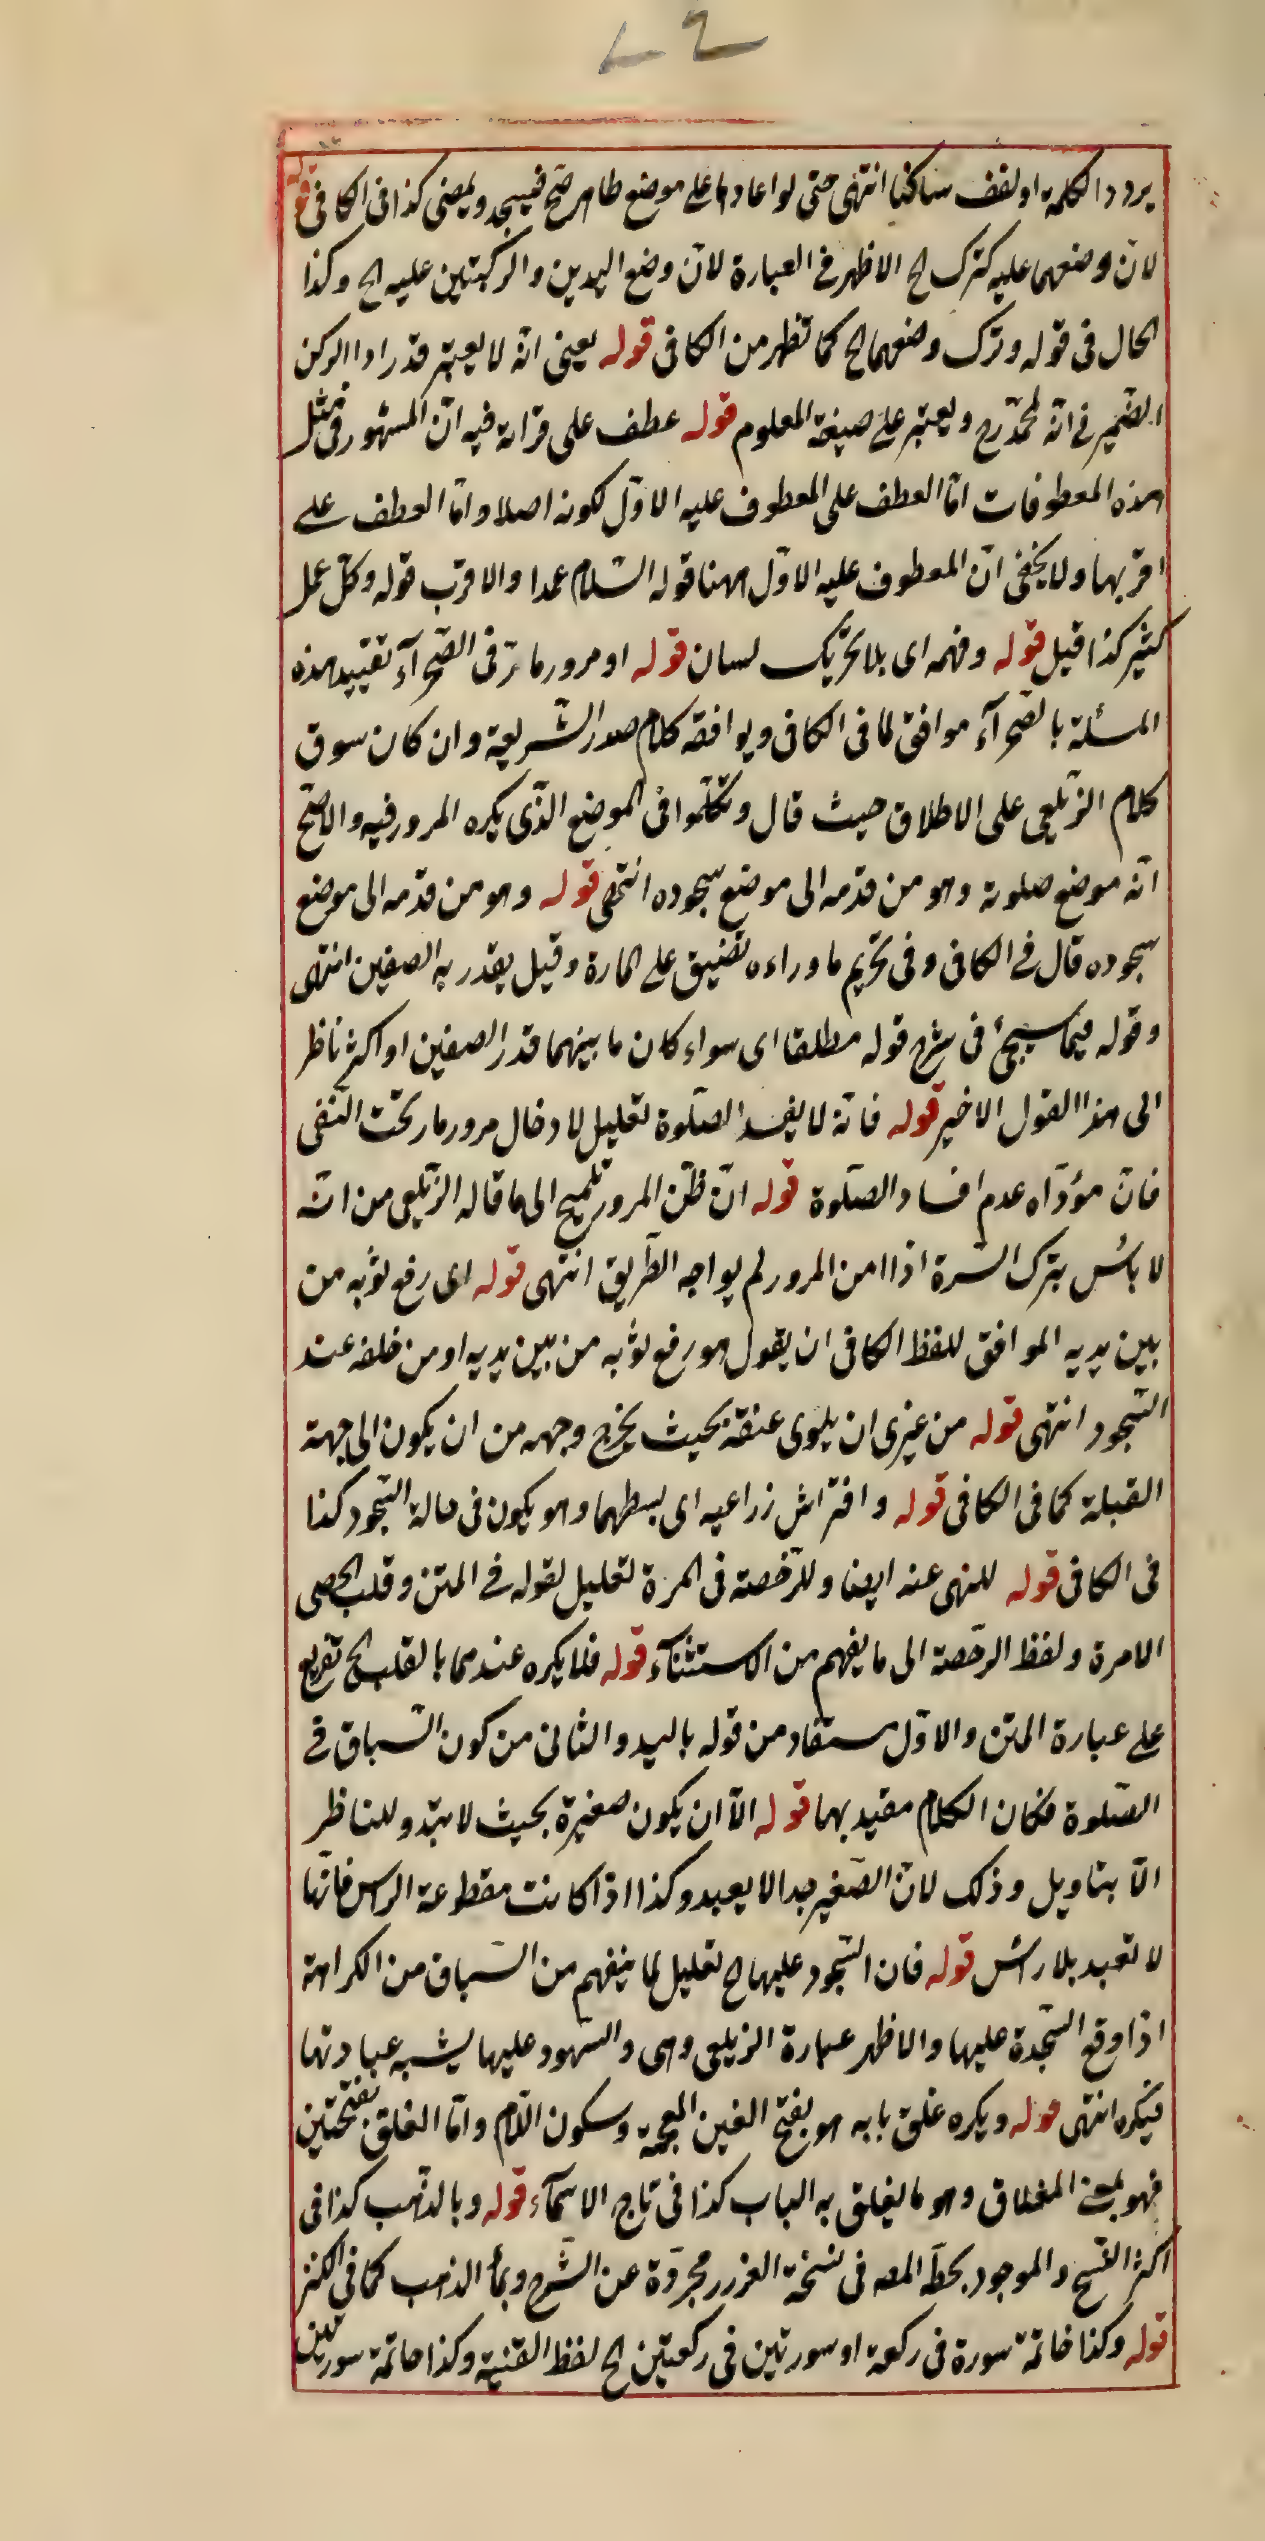 ٧٢
يردد الكلمة او لقف ساكنا انتهى حتى لو اعادها على موضع طاهر صح فيسجد ويمضى كذا فى الكافى قوله
لان وضعهما عليه كترك الخ الاظهر فى العبارة لان وضع اليدين والركبتين عليه الخ وكذا
الحال فى قوله وترك وضعهما الخ كما تظهر من الكافى قوله يعنى انه لا يعتبر قدر اداالركن
الضمير فى انه لمحمد رح ويعتبر على صيغة المعلوم قوله عطف على قراءة فيه ان المشهور فى مثل
هذه المعطوفات اما العطف على المعطوف عليه الاول لكونه اصلا واما العطف على
اقربها ولا يخفى ان المعطوف عليه الاول ههنا قوله السلام عمدا والاقرب قوله وكل عمل
كثير كذا قيل قوله وفهمه اى بلا تحريك لسان قوله او مرور مار فى الصحرآء تقييد هذه
المسئلة بالصحرآء موافق لما فى الكافى ويوافقه كلام صدر الشريعة وان كان سوق
كلام الزيلعى على الاطلاق حيث قال وتكلموا فى الموضع الذى يكره المرور فيه والاصح
انه موضع صلوته وهو من قدمه الى موضع سجوده انتهى قوله وهو من قدمه الى موضع
سجوده قال فى الكافى وفى تحريم ما وراءه تضييق على المارة وقيل يقدر به الصفين انتهى
وقوله فيما سيجئ فى شرح قوله مطلقا اى سواء كان ما بينهما قدر الصفين او اكثر ناظر
الى هذا القول الاخير قوله فانه لا يفسد الصلوة تعليل لادخال مرور مار تحت النفى
فان مؤداه عدم افساد الصلوة قوله ان ظن المرور تلميح الى ما قاله الزيلعى من انه
لا بأس بترك السترة اذا امن المرور لم يواجه الطريق انتهى قوله اى رفع ثوبه من
بين يديه الموافق للفظ الكافى ان يقول هو رفع ثوبه من بين يديه او من خلفه عند
السجود انتهى قوله من غيرى ان يلوى عنقه بحيث يخرج وجهه من ان يكون الى جهة
القبلة كما فى الكافى قوله وافتراش زراعيه اى بسطهما وهو يكون فى حالة السجود كذا
فى الكافى قوله للنهى عنه ايضا وللرخصة فى المرة تعليل لقوله فى المتن وقلب الحصى
الا مرة ولفظ الرخصة الى ما يفهم من الاستثنآء قوله فلا يكره عندهما بالقلب الخ تفريع
على عبارة المتن والاول مستفاد من قوله باليد والثانى من كون السباق فى
الصلوة فكان الكلام مقيد بهما قوله الا ان يكون صغيرة بحيث لا تبدو للناظر
الا بتاويل وذلك لان الصغير جدا لا يعبد وكذا اذا كانت مقطوعة الراس فانها
لا تعبد بلا رأس قوله فان السجود عليها الخ تعليل لما ينفهم من السباق من الكراهة
اذا وقع السجدة عليها والاظهر عبارة الزيلعى وهى والسهود عليها يشبه عبادتها
فيكره انتهى قوله ويكره غلق بابه هو بفتح الغين المعجمة وسكون اللام واما الغلق بفتحتين
فهو بمعنى المغلاق وهو ما يغلق به الباب كذا فى تاج الاسمآء قوله وبالذهب كذا فى
اكثر النسخ والموجود بخط المص فى نسخة الغرر مجردة عن الشرح وبمأ الذهب كما فى الكنز
قوله وكذا خاتمة سورة فى ركعة او سورتين فى ركعتين الخ لفظ القنية وكذا خاتمة سورتين